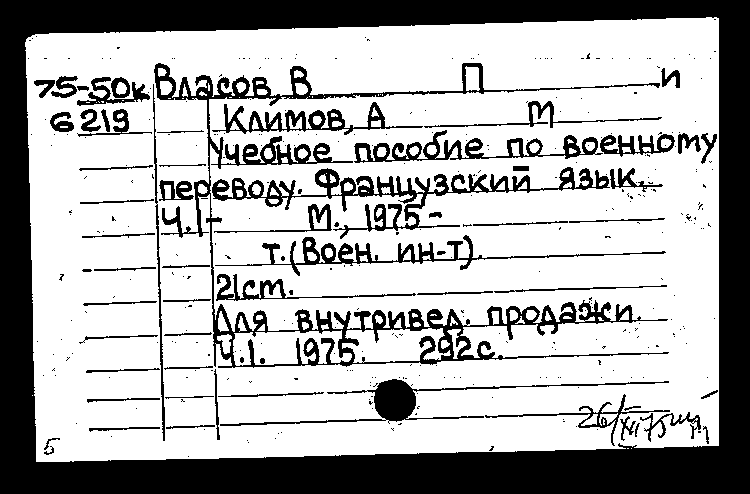 75-50к Власов, В П и
6219 Климов, А М
Учебное пособие по военному
переводу. Французский язык.
Ч.1- М., 1975-
т. (Воен. ин-т).
21см.
Для внутривед. продажи.
Ч.1. 1975. 292с.
26/XII 75
5